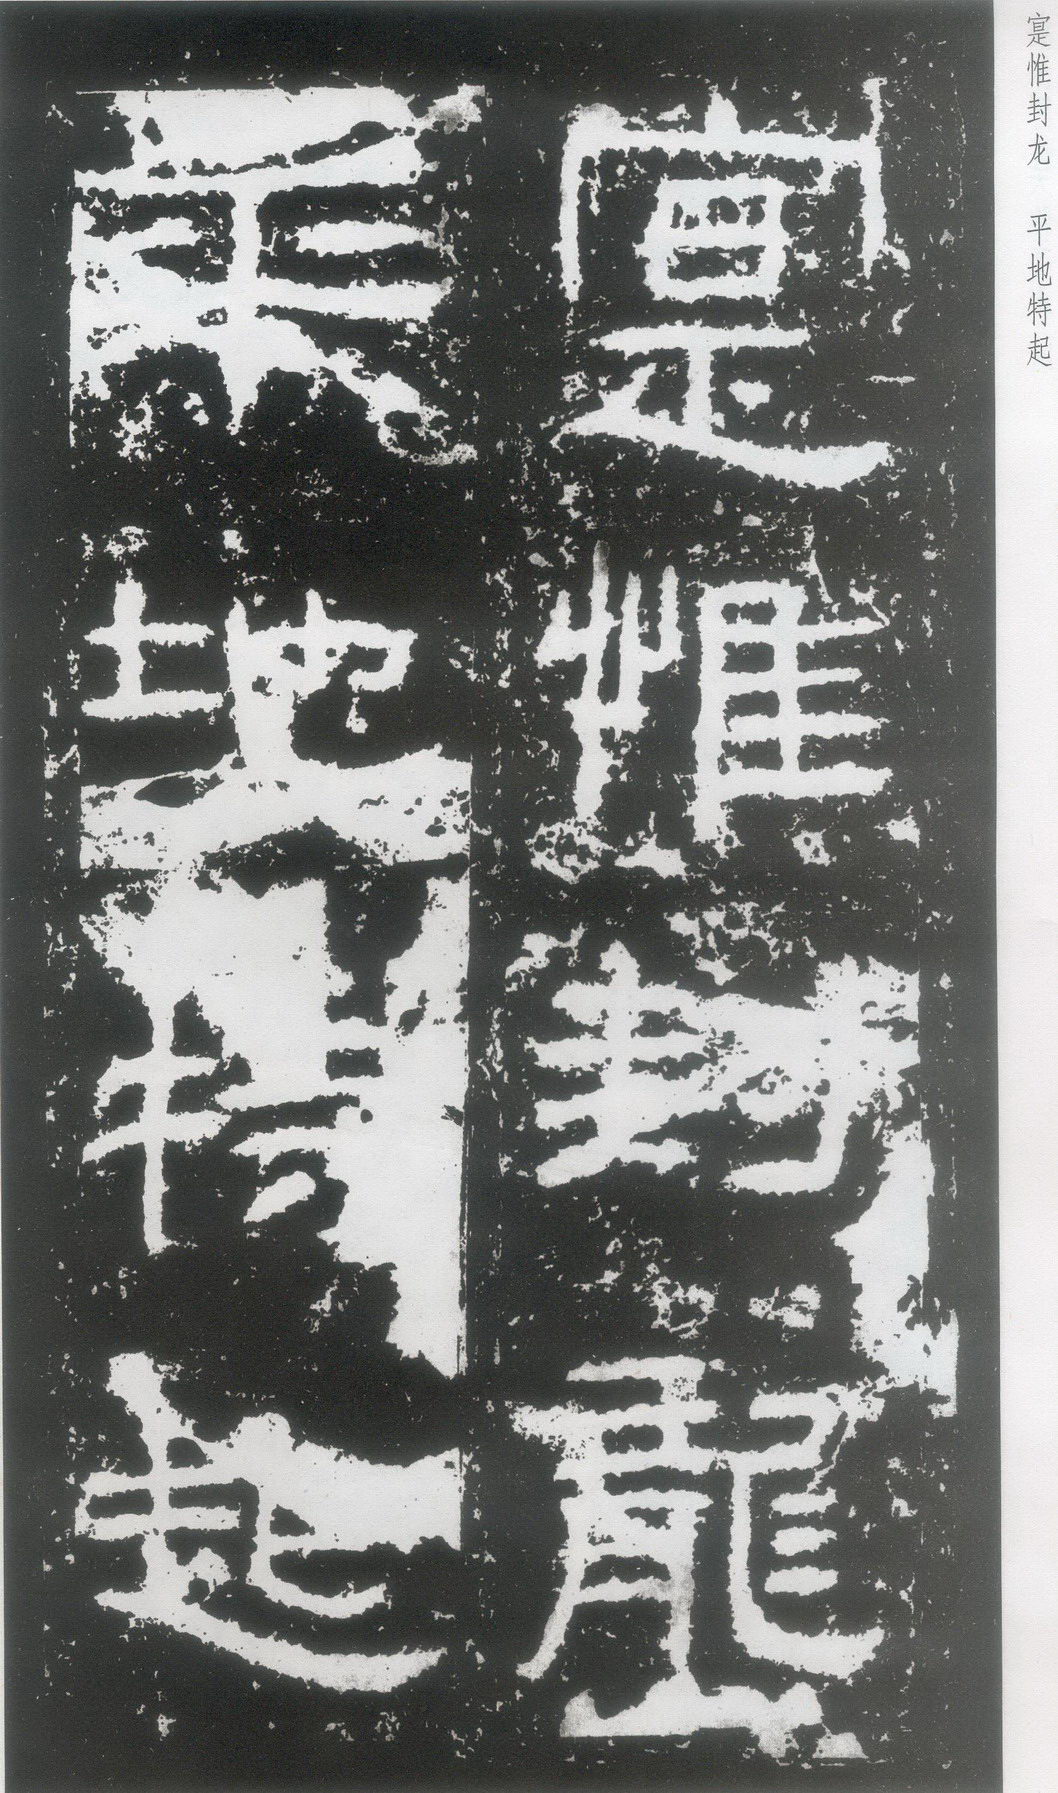 寔惟封龙　平地特起
寔惟封龍
平地特起